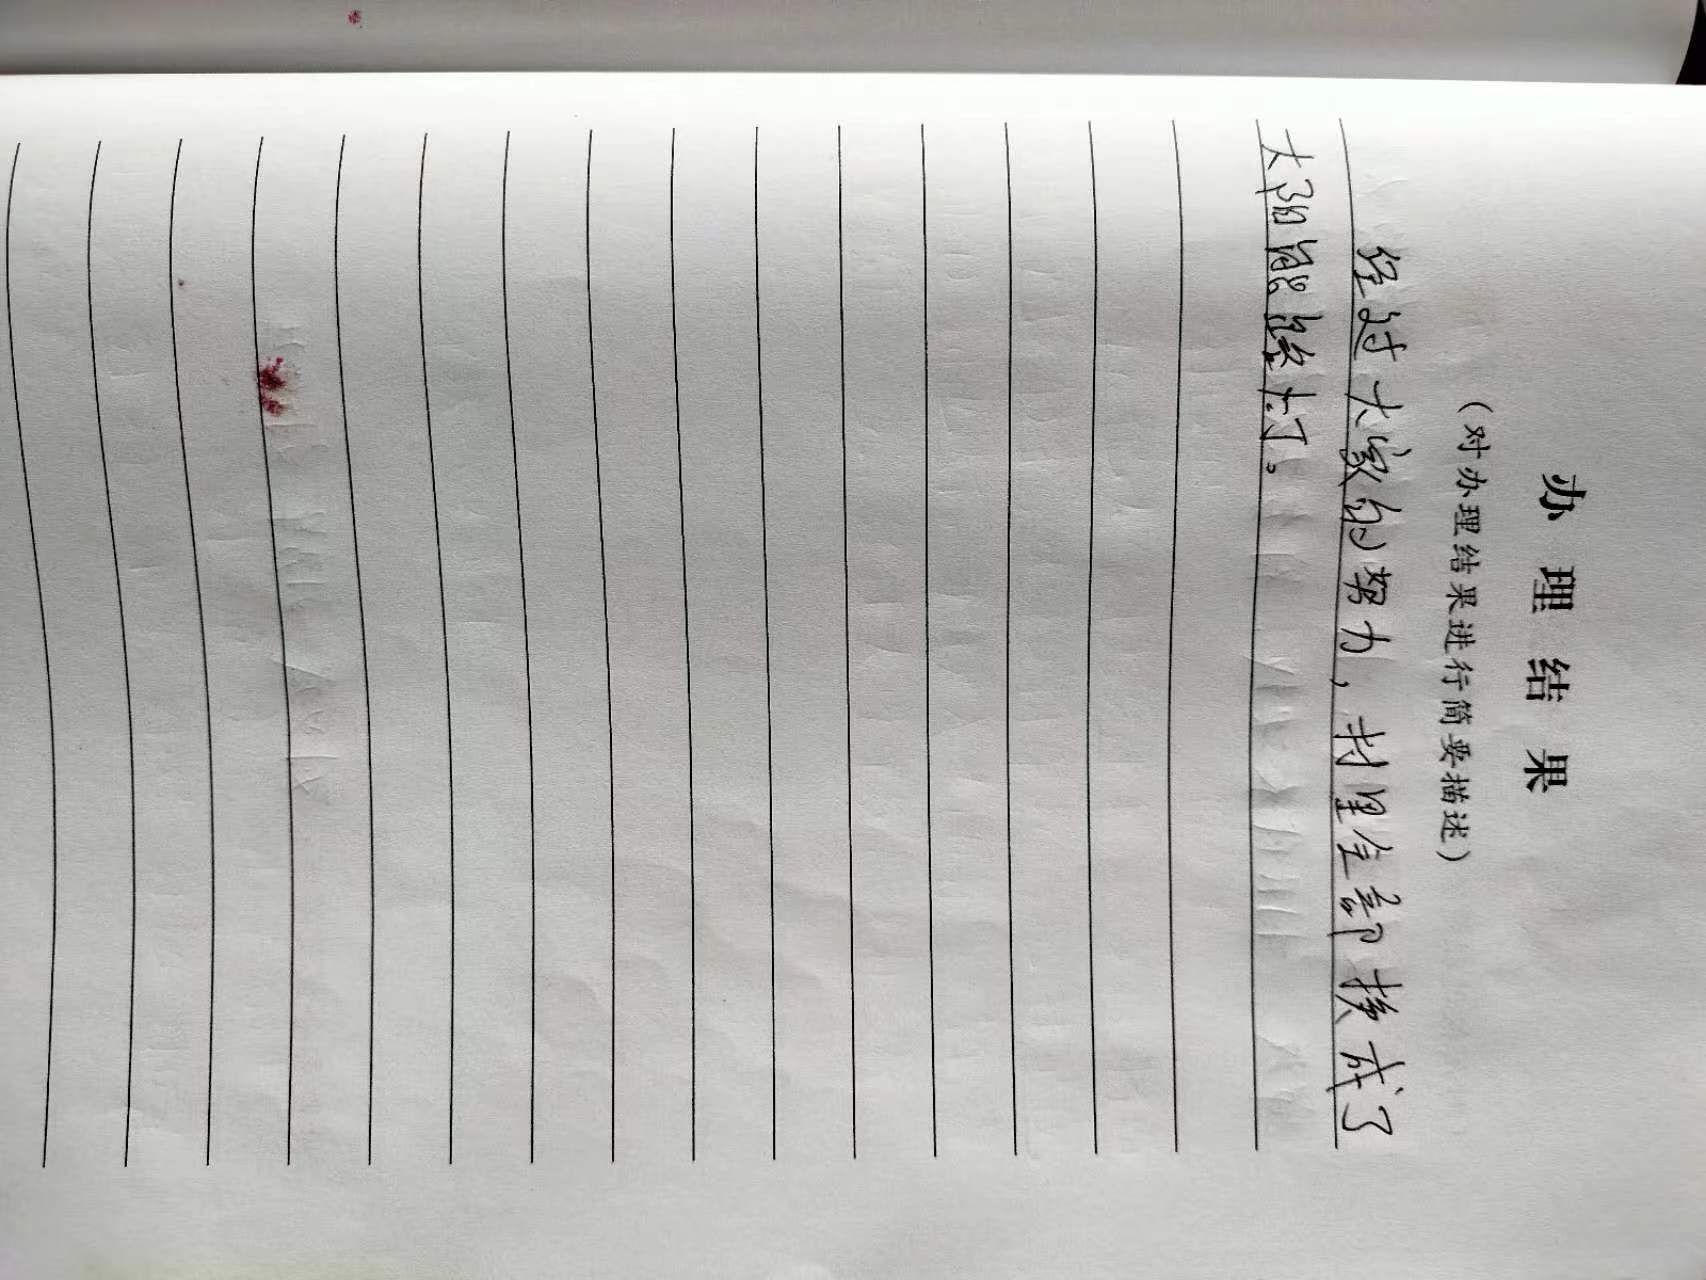 办理结果
（对办理结果进行简要描述）
经过大家的努力，村里全部换成了
太阳能路灯。